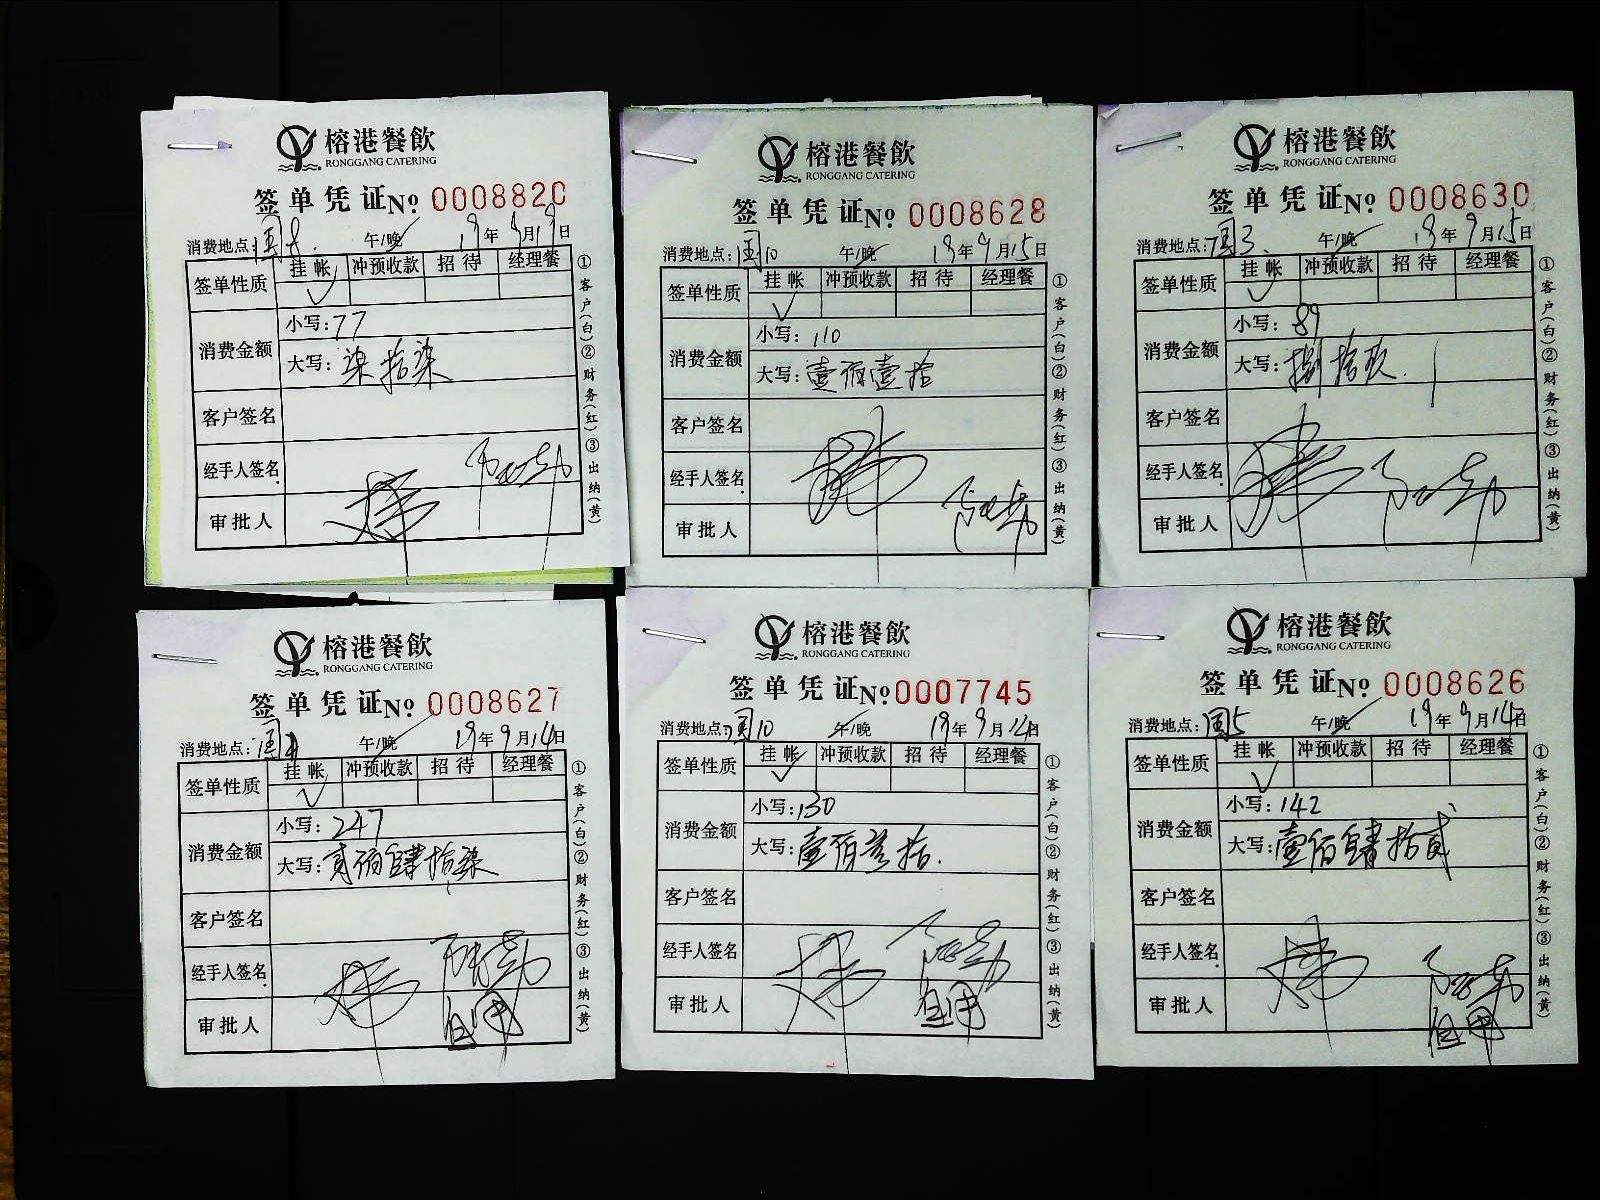 榕港餐飲
RONGGANG CATERING
签单凭证 No 0008820
消费地点: 国 午/晚 19年9月19日
签单性质 挂帐 冲预收款 招待 经理餐
消费金额 小写: 77
大写: 柒拾柒
客户签名
经手人签名
审批人
①客户(白)②财务(红)③出纳(黄)
榕港餐飲
RONGGANG CATERING
签单凭证 No 0008628
消费地点: 国10 午/晚 19年9月15日
签单性质 挂帐 冲预收款 招待 经理餐
消费金额 小写: 110
大写: 壹佰壹拾
客户签名
经手人签名
审批人
①客户(白)②财务(红)③出纳(黄)
榕港餐飲
RONGGANG CATERING
签单凭证 No 0008630
消费地点: 国3 午/晚 19年9月15日
签单性质 挂帐 冲预收款 招待 经理餐
消费金额 小写: 89
大写: 捌拾玖
客户签名
经手人签名
审批人
①客户(白)②财务(红)③出纳(黄)
榕港餐飲
RONGGANG CATERING
签单凭证 No 0008627
消费地点: 国 午/晚 19年9月14日
签单性质 挂帐 冲预收款 招待 经理餐
消费金额 小写: 247
大写: 贰佰肆拾柒
客户签名
经手人签名
审批人 自用
①客户(白)②财务(红)③出纳(黄)
榕港餐飲
RONGGANG CATERING
签单凭证 No 0007745
消费地点: 国10 午/晚 19年9月14日
签单性质 挂帐 冲预收款 招待 经理餐
消费金额 小写: 130
大写: 壹佰叁拾
客户签名
经手人签名
审批人 自用
①客户(白)②财务(红)③出纳(黄)
榕港餐飲
RONGGANG CATERING
签单凭证 No 0008626
消费地点: 国5 午/晚 19年9月14日
签单性质 挂帐 冲预收款 招待 经理餐
消费金额 小写: 142
大写: 壹佰肆拾贰
客户签名
经手人签名
审批人 自用
①客户(白)②财务(红)③出纳(黄)